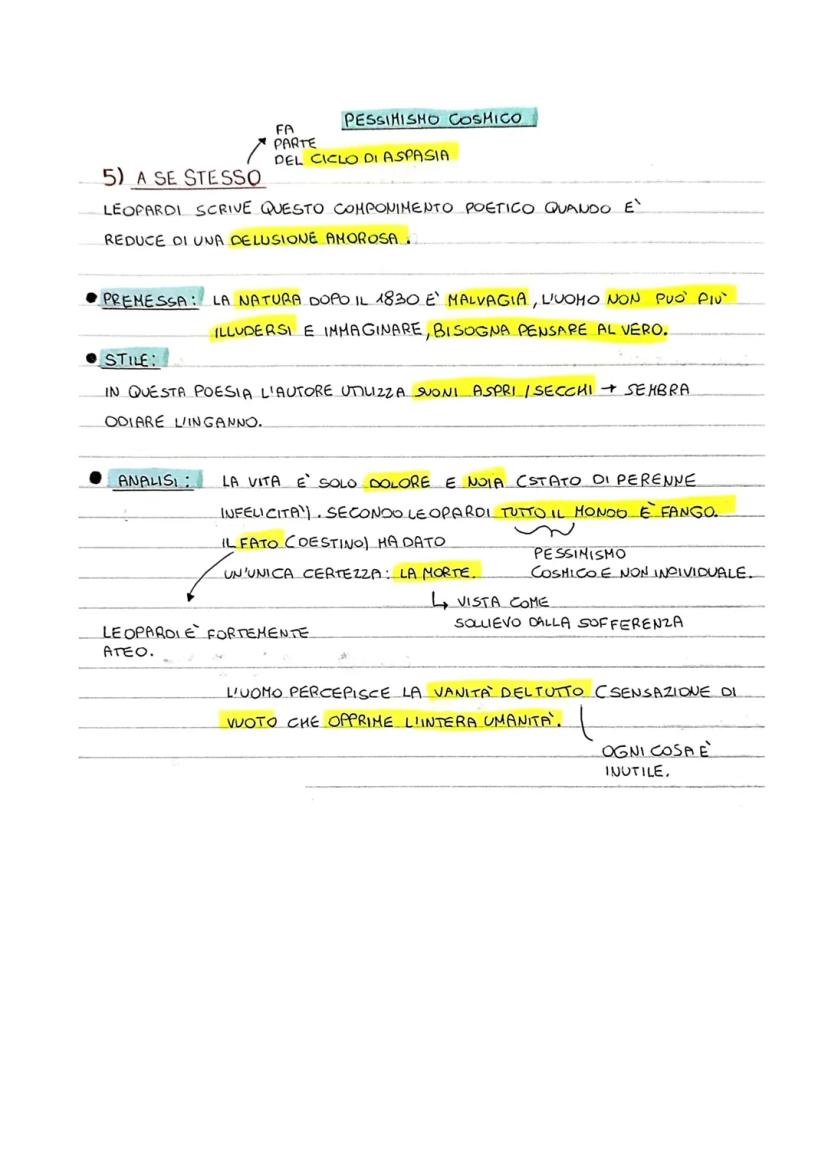 PESSIMISMO COSMICO
FA
PARTE
DEL CICLO DI ASPASIA
5) A SE STESSO
LEOPARDI SCRIVE QUESTO COMPONIMENTO POETICO QUANDO E'
REDUCE DI UNA DELUSIONE AMOROSA.
● PREMESSA: LA NATURA DOPO IL 1830 E' MALVAGIA, L'UOMO NON PUO' PIU'
ILLUDERSI E IMMAGINARE, BISOGNA PENSARE AL VERO.
● STILE:
IN QUESTA POESIA L'AUTORE UTILIZZA SUONI ASPRI/SECCHI → SEMBRA
ODIARE L'INGANNO.
● ANALISI: LA VITA E' SOLO DOLORE E NOIA (STATO DI PERENNE
INFELICITA'). SECONDO LEOPARDI TUTTO IL MONDO E' FANGO.
IL FATO (DESTINO) HA DATO
PESSIMISMO
UN'UNICA CERTEZZA: LA MORTE. COSMICO E NON INDIVIDUALE.
↳ VISTA COME
SOLLIEVO DALLA SOFFERENZA
LEOPARDI E' FORTEMENTE
ATEO.
L'UOMO PERCEPISCE LA VANITA' DEL TUTTO (SENSAZIONE DI
VUOTO CHE OPPRIME L'INTERA UMANITA'.
OGNI COSA E'
INUTILE.